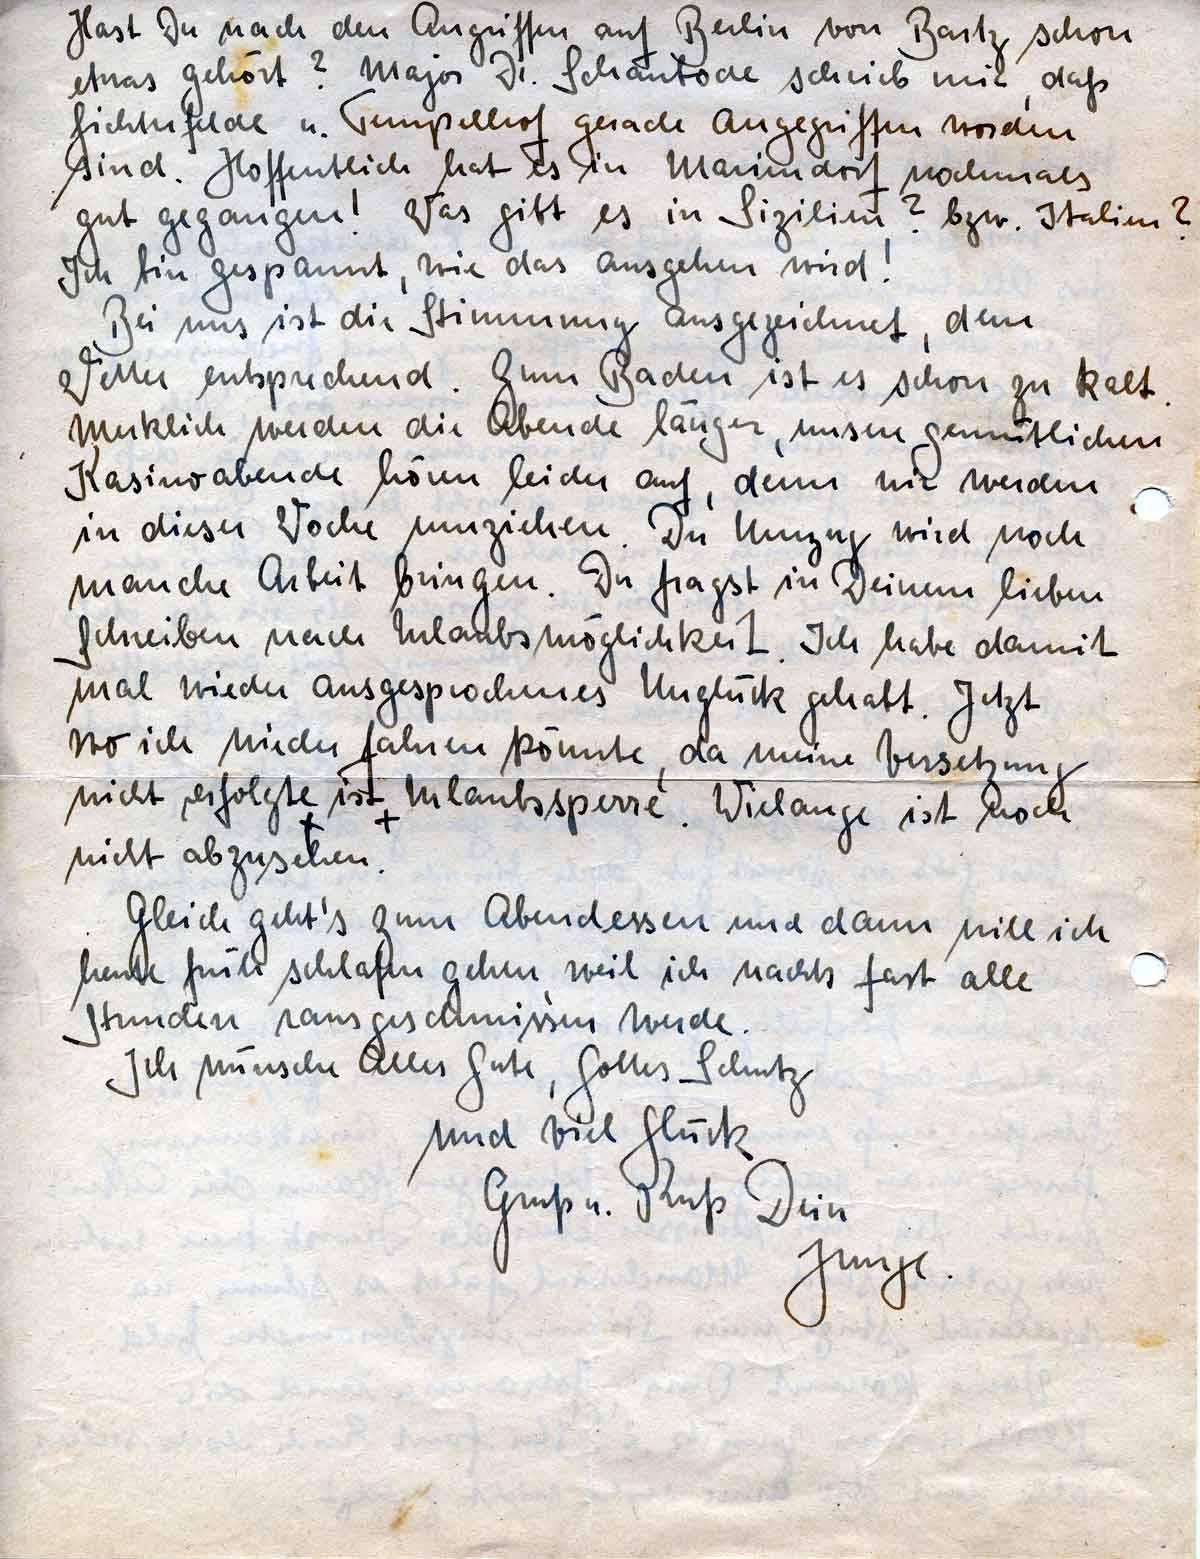 Hast Du nach den Angriffen auf Berlin von Bartz schon
etwas gehört? Major Dr. Schantode schrieb mir, daß
Lichterfelde u. Tempelhof gerade angegriffen worden
sind. Hoffentlich hat es in Mariendorf nochmals
gut gegangen! Was gibt es in Sizilien? bzw. Italien?
Ich bin gespannt, wie das ausgehen wird!
Bei uns ist die Stimmung ausgezeichnet, dem
Wetter entsprechend. Zum Baden ist es schon zu kalt.
Merklich werden die Abende länger, unsere gemütlichen
Kasinoabende hören leider auf, denn wir werden
in dieser Woche umziehen. Der Umzug wird noch
manche Arbeit bringen. Du fragst in Deinem lieben
Schreiben nach Urlaubsmöglichkeit. Ich habe damit
mal wieder ausgesprochenes Unglück gehabt. Jetzt
wo ich wieder fahren könnte, da meine Versetzung
nicht erfolgte ist Urlaubssperre. Wielange ist noch
nicht abzusehen.
Gleich geht's zum Abendessen und dann will ich
heute früh schlafen gehen, weil ich nachts fast alle
Stunden rausgeschmissen werde.
Ich wünsche Alles Gute, Gottes Schutz
und viel Glück
Gruß u. Kuß Dein
Junge.